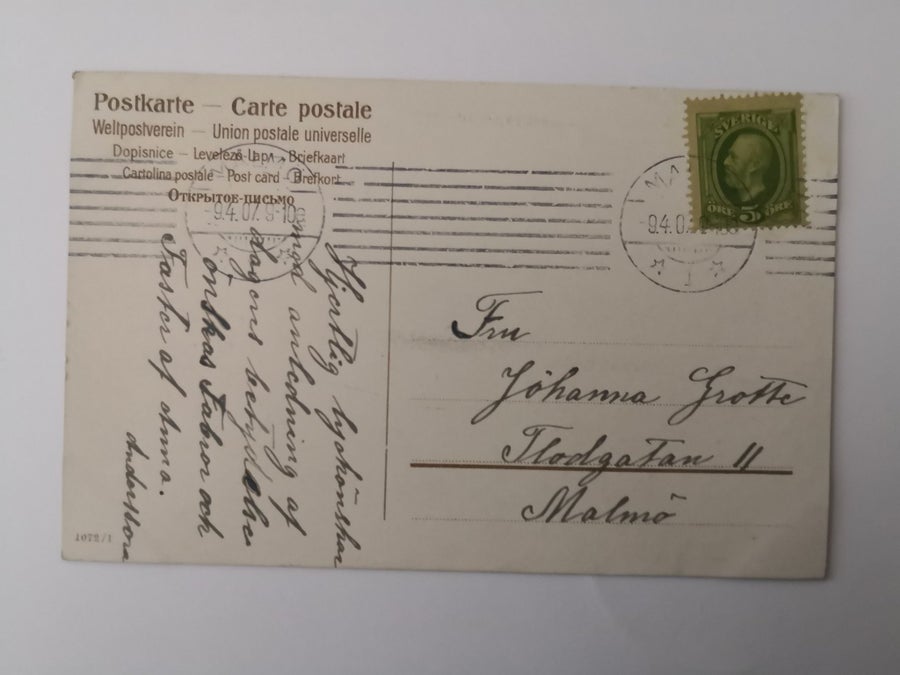 Postkarte — Carte postale
Weltpostverein — Union postale universelle
Dopisnice — Levelező-Lap — Briefkaart
Cartolina postale — Post card — Brefkort
Открытое-письмо
SVERIGE
ÖRE 5 ÖRE
9.4.07. 9-10
9.4.07
1
Hjertlig lyckönskan
med anledning af
dagens betydelse
önskas Fabror och
Faster af Anna.
Andersson
Fru
Johanna Grotte
Flodgatan 11
Malmö
1072/1